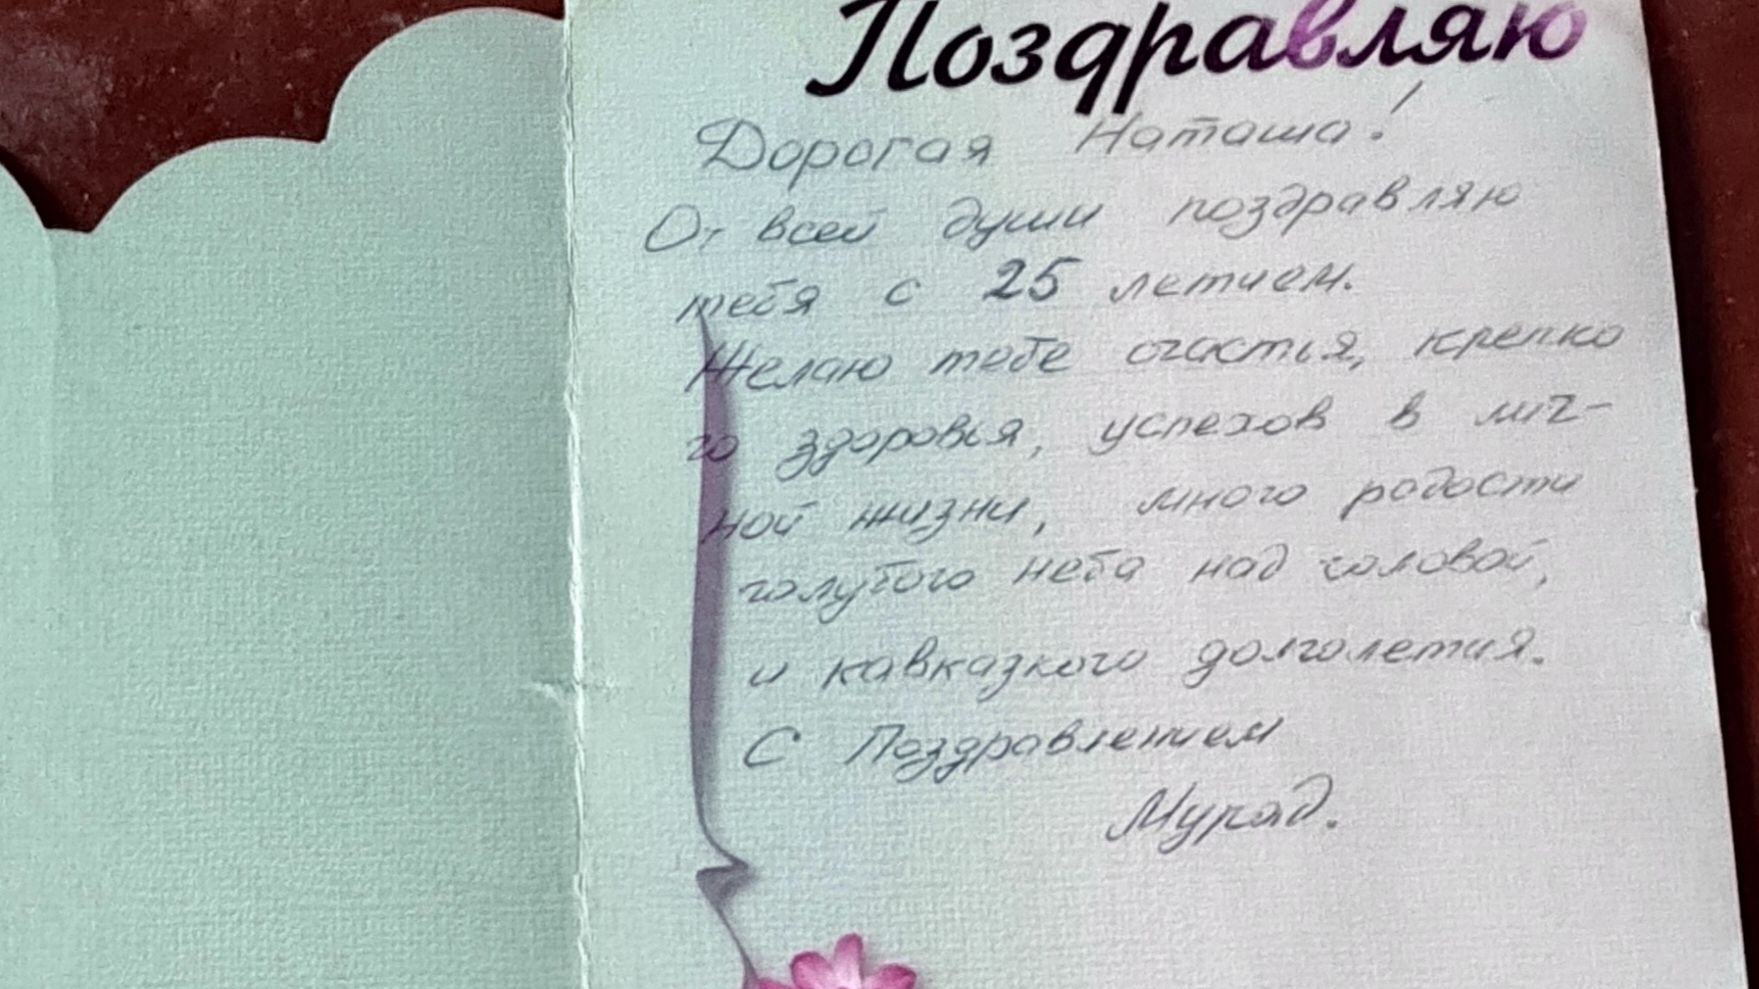 Поздравляю
Дорогая Наташа!
От всей души поздравляю
тебя с 25 летием.
Желаю тебе счастья, крепко
го здоровья, успехов в лич-
ной жизни, много радости
голубого неба над головой,
и кавказкого долголетия.
С Поздравлением
Мурад.